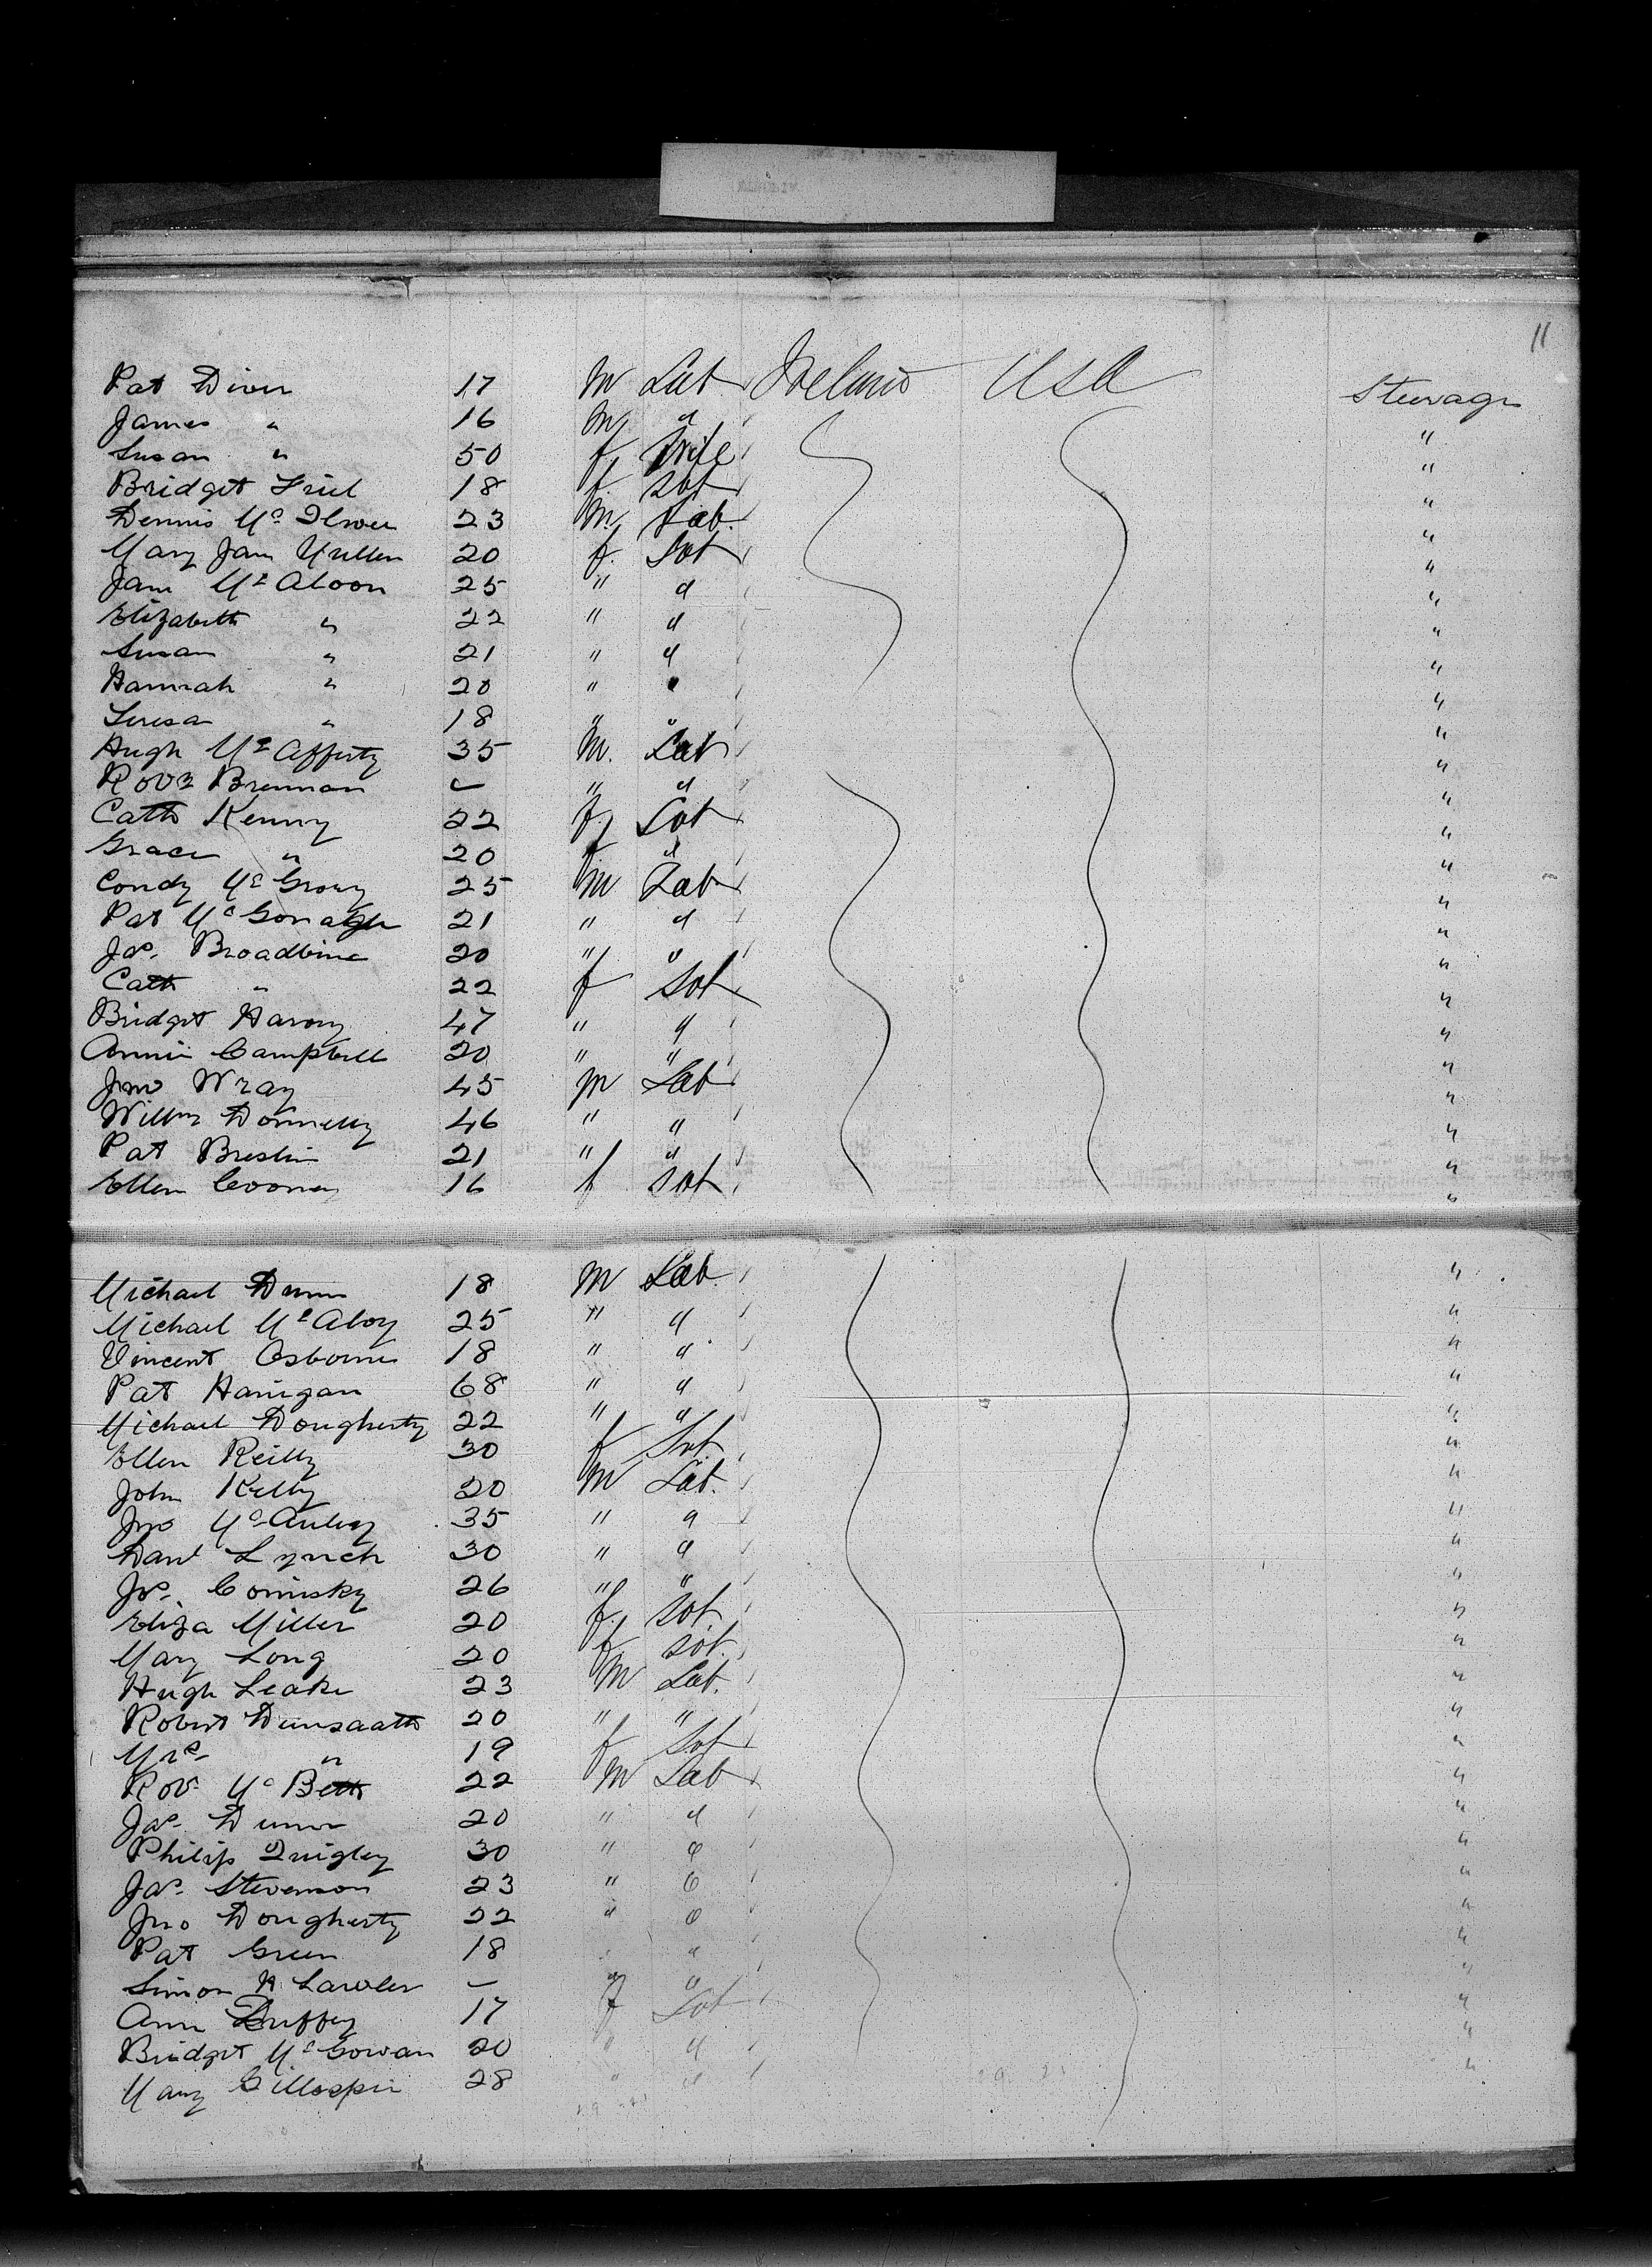 11
Pat Diver 17 M Lab Ireland USA Steerage
James " 16 M " "
Susan " 50 f Wife "
Bridget Friel 18 f Svt "
Dennis Mc Ilwee 23 M Lab. "
Mary Jane Mullen 20 f. Svt "
Jane Mc Aloon 25 " " "
Elizabeth " 22 " " "
Susan " 21 " " "
Hannah " 20 " " "
Teresa " 18 " " "
Hugh Mc Afferty 35 M. Lab "
Robt Brennan – " " "
Cath Kenny 22 f Svt "
Grace " 20 " "
Condy Mc Growy 25 M Lab "
Pat Mc Gonagle 21 " " "
Jas. Broadbine 20 " " "
Cath " 22 f Svt "
Bridget Harvy 47 " " "
Annie Campbell 20 " " "
Jno Wray 45 M Lab "
Willm Donnelly 46 " " "
Pat Breslin 21 " " "
Ellen Coonay 16 f Svt "
Michael Dunn 18 M Lab. "
Michael Mc Aboy 25 " " "
Vincent Osborne 18 " " "
Pat Hanigan 68 " " "
Michael Dougherty 22 " " "
Ellen Reilly 30 f Svt. "
John Kelly 20 M Lab. "
Jno Mc Auley 35 " " "
Danl Lynch 30 " " "
Jas. Comisky 26 " " "
Eliza Miller 20 f. Svt. "
Mary Long 20 f. Svt. "
Hugh Leake 23 M Lab. "
Robert Dunsaath 20 " " "
Mrs " 19 f Svt "
Rob Mc Beth 22 M Lab "
Jas. Dunn 20 " " "
Philip Quigley 30 " " "
Jas. Stevenson 23 " " "
Jno Dougherty 22 " " "
Pat Green 18 " " "
Simon H. Lawler – " " "
Ann Duffey 17 f Svt "
Bridget Mc Gowan 20 " " "
Mary Gillespie 28 " " "